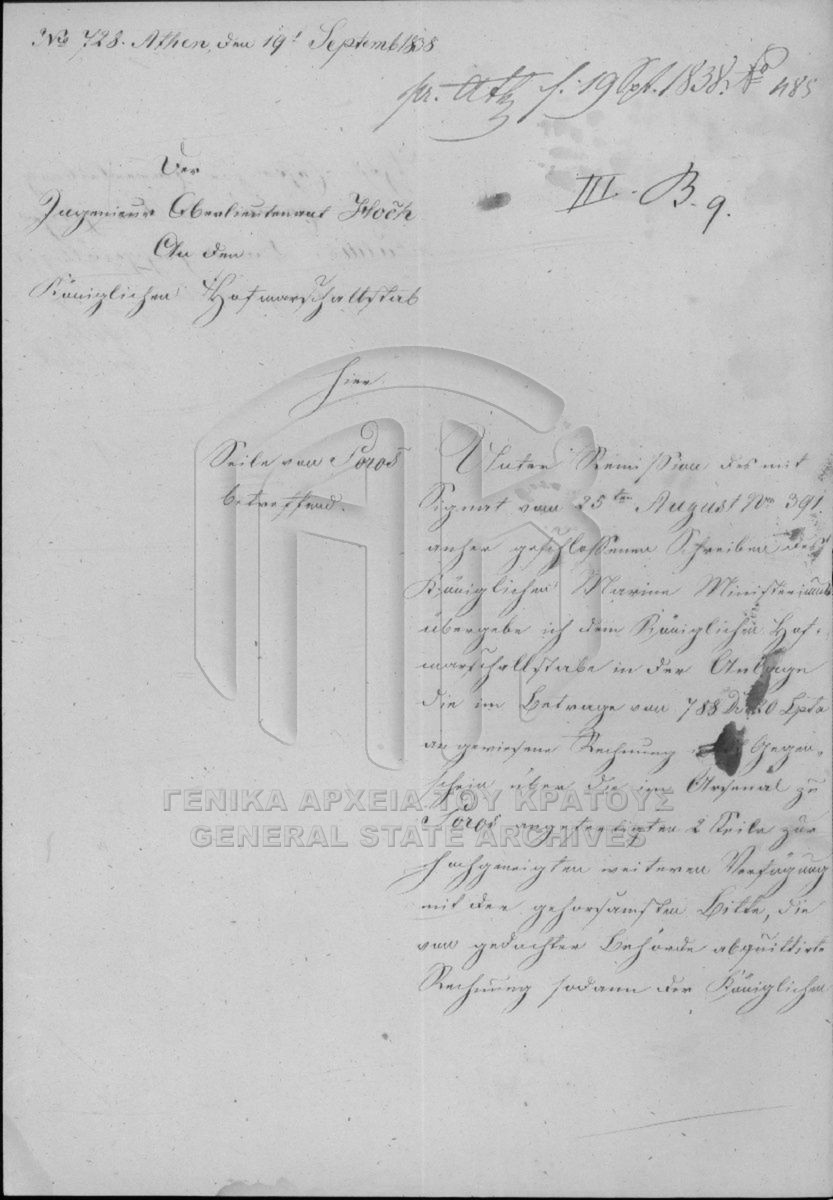 No 728. Athen, den 19t Septemb 1838
pr. Ath. 19 Spt. 1838. No 485
III. B. 9.
Der
Ingenieur Oberlieutenant Hoch
An den
Königlichen Hofmarschallstab
hier.
Seile von Poros
betreffend.
Unter Remission des mit
Signat vom 25ten August No 391
anher geschlossenen Schreiben des
Königlichen Marine Ministeriums
übergebe ich dem Königlichen Hof-
marschallstabe in der Anlage
die im Betrage von 788 Dr 20 Lpta
angewiesene Rechnung Gegen-
schein über die im Arsenal zu
Poros angefertigten 2 Seile zur
hochgeneigten weiteren Verfügung
mit der gehorsamsten Bitte, die
von gedachter Behörde abquittirte
Rechnung sodann der Königlichen
ΓΕΝΙΚΑ ΑΡΧΕΙΑ ΤΟΥ ΚΡΑΤΟΥΣ
GENERAL STATE ARCHIVES